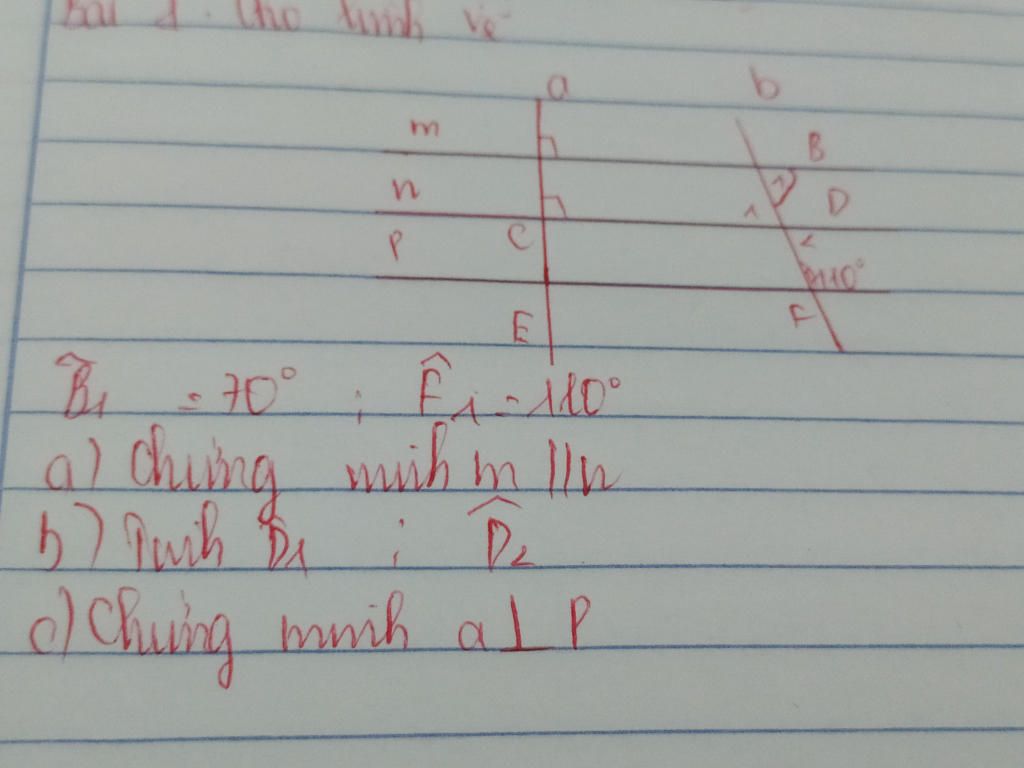 Bài 1. Cho hình vẽ
a
b
m
B
1
n
D
1
C
2
P
110°
F
E
B̂1 = 70° ; F̂1 = 110°
a) Chứng minh m // n
b) Tính D1 ; D̂2
c) Chứng minh a ⊥ P